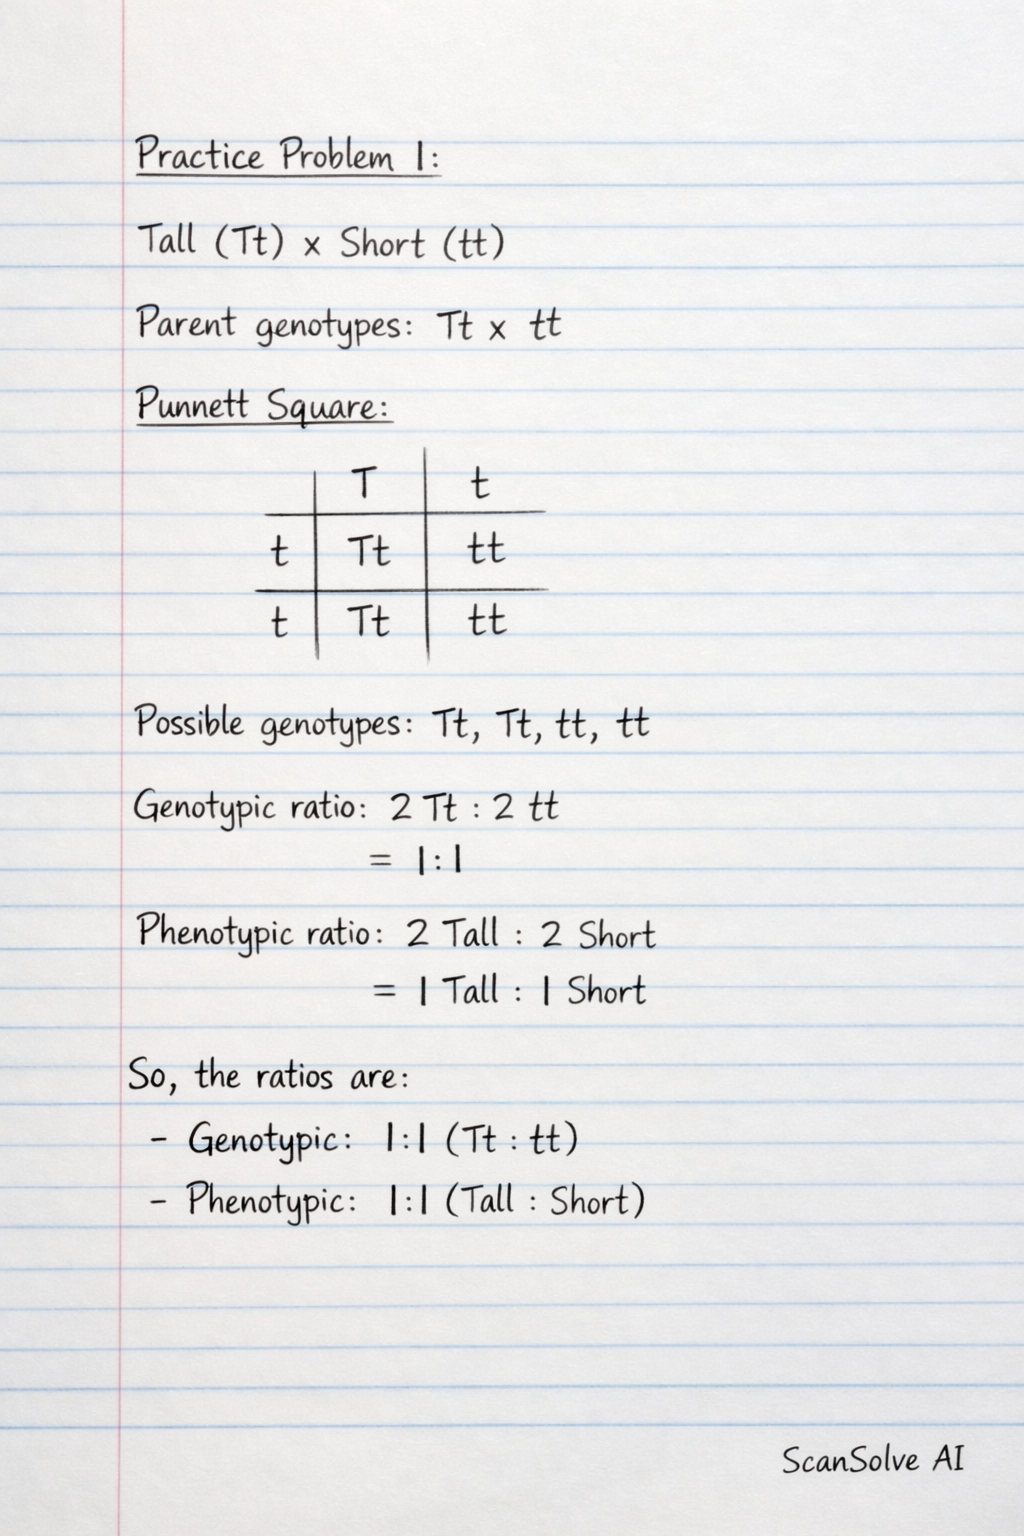 Practice Problem 1:
Tall (Tt) x Short (tt)
Parent genotypes: Tt x tt
Punnett Square:
T t
t Tt tt
t Tt tt
Possible genotypes: Tt, Tt, tt, tt
Genotypic ratio: 2 Tt : 2 tt
= 1:1
Phenotypic ratio: 2 Tall : 2 Short
= 1 Tall : 1 Short
So, the ratios are:
- Genotypic: 1:1 (Tt : tt)
- Phenotypic: 1:1 (Tall : Short)
ScanSolve AI